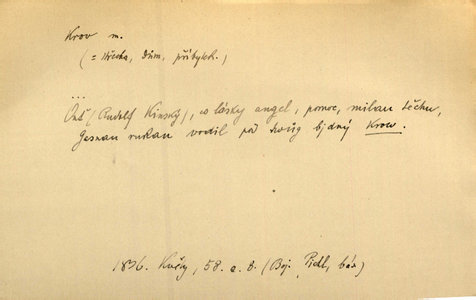 Krov m.
(= střecha, dům, příbytek.)
...
Onť (Rudolf Kinský), co lásky angel, pomoc, milau těchu,
Gesnau rukau vodil pod swůg bjdný Krow.
1836. Květy, 58. a. B. (Boj. Pichl, báseň)